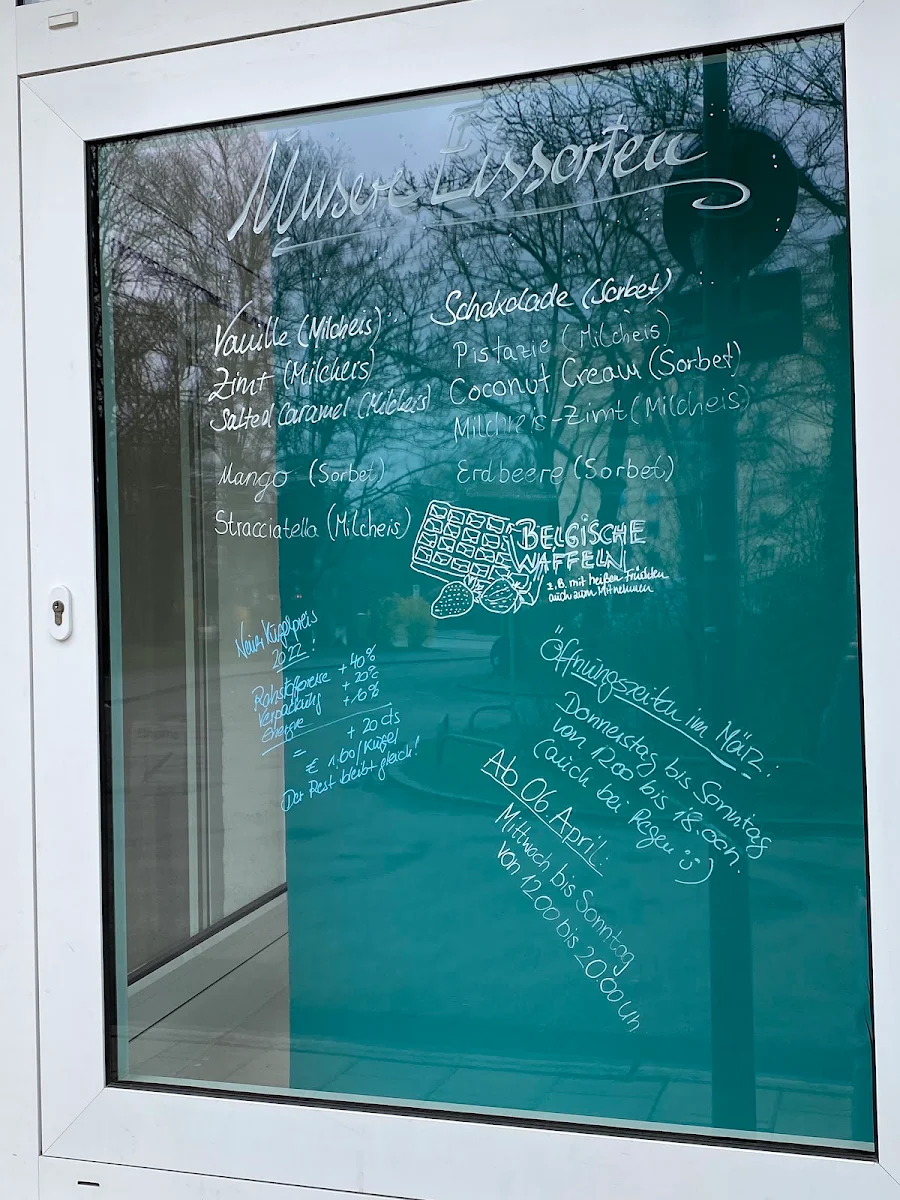 Unsere Eissorten
Vanille (Milcheis)
Zimt (Milcheis)
Salted Caramel (Milcheis)
Mango (Sorbet)
Stracciatella (Milcheis)
Schokolade (Sorbet)
Pistazie (Milcheis)
Coconut Cream (Sorbet)
Milchreis-Zimt (Milcheis)
Erdbeere (Sorbet)
BELGISCHE
WAFFELN
z.B. mit heißen Früchten
auch zum Mitnehmen
Neuer Kugelpreis
2022!
Rohstoffpreise +40%
Verpackung + 20%
Energie +10%
= + 20 cts
€ 1,60/Kugel
Der Rest bleibt gleich!
Öffnungszeiten im März:
Donnerstag bis Sonntag
von 12.00 bis 18.00h.
(auch bei Regen :))
Ab 06. April:
Mittwoch bis Sonntag
von 12.00 bis 20.00 Uh